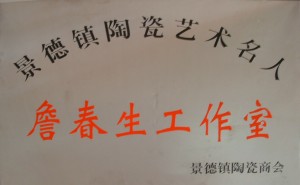 景德镇陶瓷艺术名人
詹春生工作室
景德镇陶瓷商会